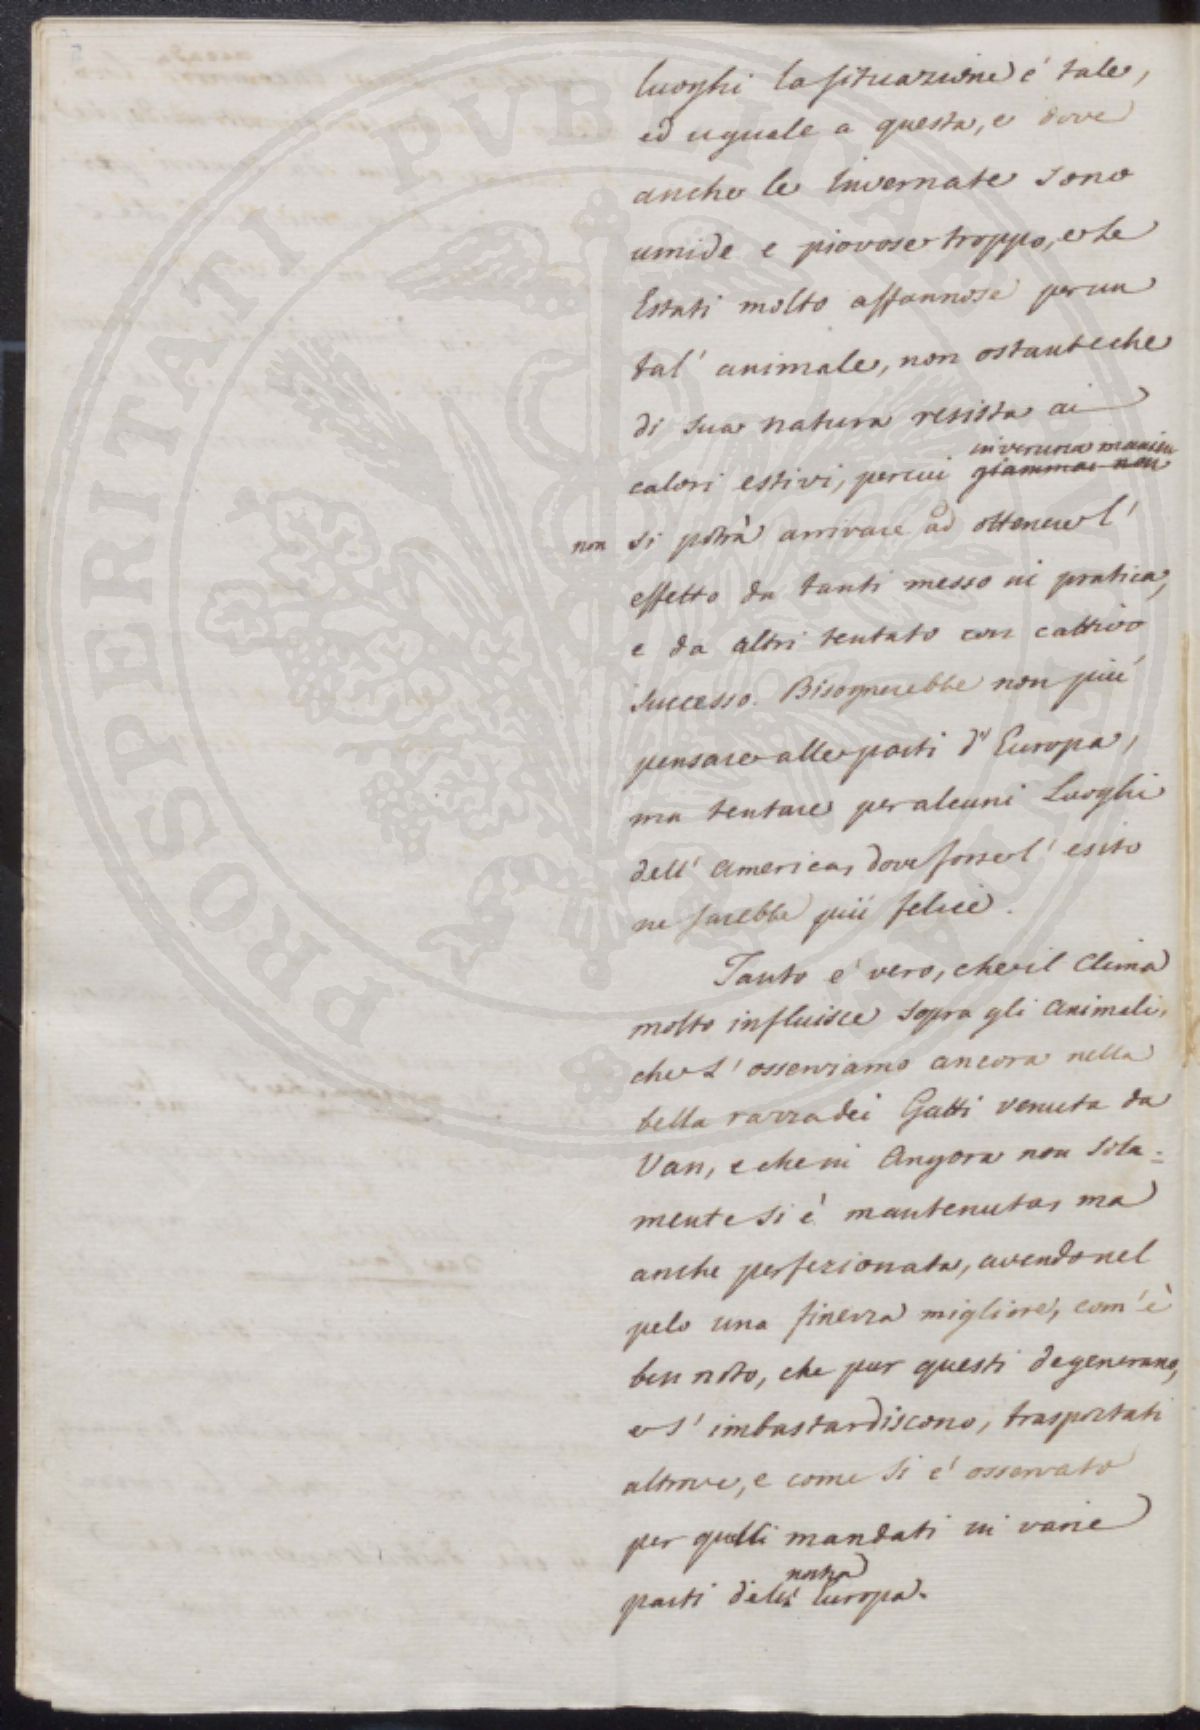 luoghi la situazione é tale,
ed uguale a questa, e dove
anche le Invernate sono
umide e piovose troppo, e le
Estati molto affannose per un
tal' animale, non ostante che
di sua natura resista ai
in veruna manieu
calori estivi, per cui giammai non
non si potrà arrivare ad ottenere l'
effetto da tanti messo in pratica,
e da altri tentato con cattivo
successo. Bisognerebbe non piú
pensare alle parti d' Europa,
ma tentare per alcuni Luoghi
dell' America, dove forse l' esito
ne sarebbe piú felice.
Tanto é vero, che il Clima
molto influisce sopra gli animali,
che l' osserviamo ancora nella
bella razza dei Gatti venuta da
Van, e che in Angora non sola=
mente si é mantenuta, ma
anche perfezionata, avendo nel
pelo una finezza migliore, com' è
ben noto, che pur questi degenerano,
e s' imbastardiscono, trasportati
altrove, e come si é osservato
per quelli mandati in varie
nostra
parti della Europa.
PROSPERITATI PVBLICAE